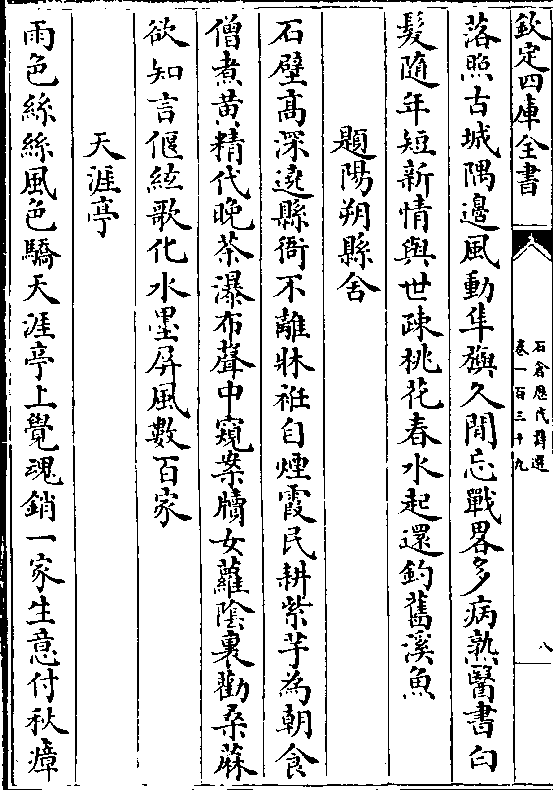 欽定四庫全書
石倉歷代詩選
卷一百三十九
八
落照古城隅邊風動隼旟久閒忘戰畧多病熟醫書白
髮隨年短新情與世疎桃花春水起還釣舊溪魚
題陽朔縣舍
石壁髙深遶縣衙不離牀衽自煙霞民耕紫芋為朝食
僧煮黄精代晚茶瀑布聲中窺案牘女蘿隂裏勸桑蔴
欲知言偃絃歌化水墨屏風數百家
天涯亭
雨色絲絲風色驕天涯亭上覺魂銷一家生意付秋瘴